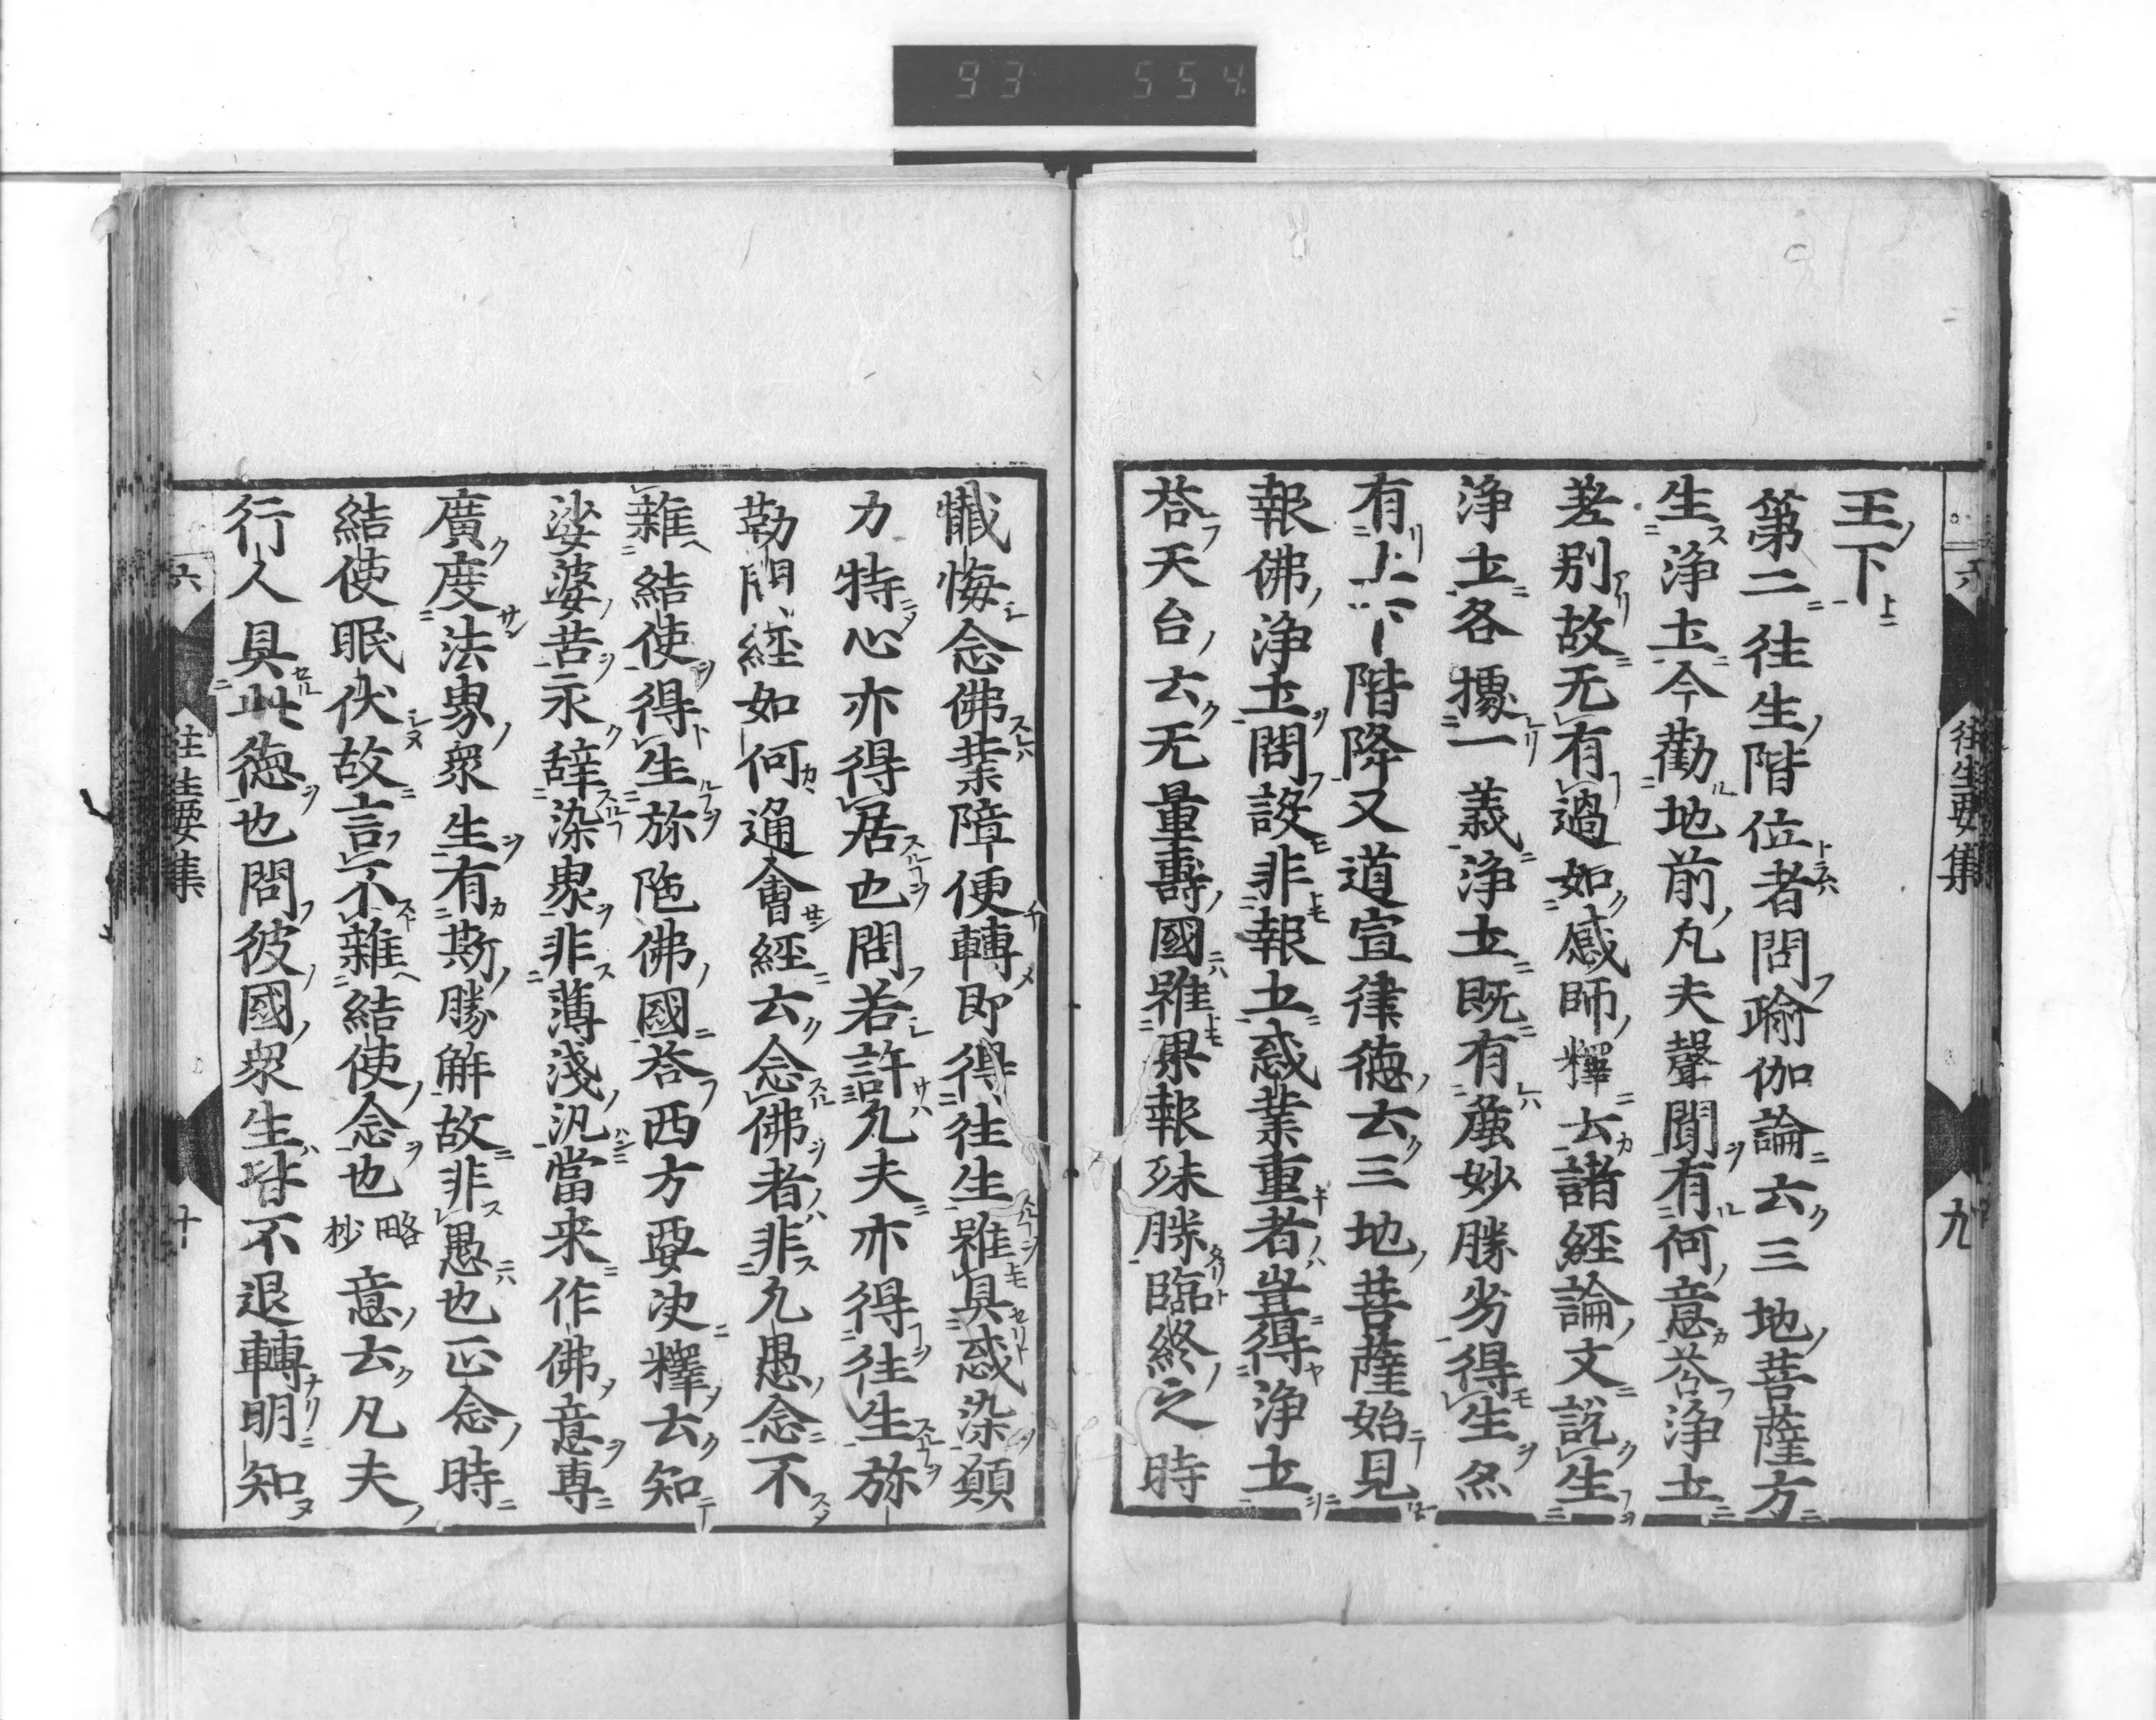 93 554
往生要集 九
王下
第二往生階位者問瑜伽論云三地菩薩方
生淨土今勸地前凡夫聲聞有何意答淨土
差別故无有過如感師釋云諸經論文說生
淨土各據一義淨土既有麁妙勝劣得生亦
有上下階降又道宣律德云三地菩薩始見
報佛淨土問設非報土惑業重者豈得淨土
答天台云无量壽國雖果報殊勝臨終之時
懺悔念佛業障便轉即得往生雖具惑染願
力持心亦得居也問若許凡夫亦得往生弥
勒問經如何通會經云念佛者非凡愚念不
雜結使得生弥陁佛國答西方要决釋云知
娑婆苦永辞染界非薄淺汎當来作佛意專
廣度法界衆生有斯勝解故非愚也正念時
結使眠伏故言不雜結使念也 略抄 意云凡夫
行人具此德也問彼國衆生皆不退轉明知
六 往生要集 十